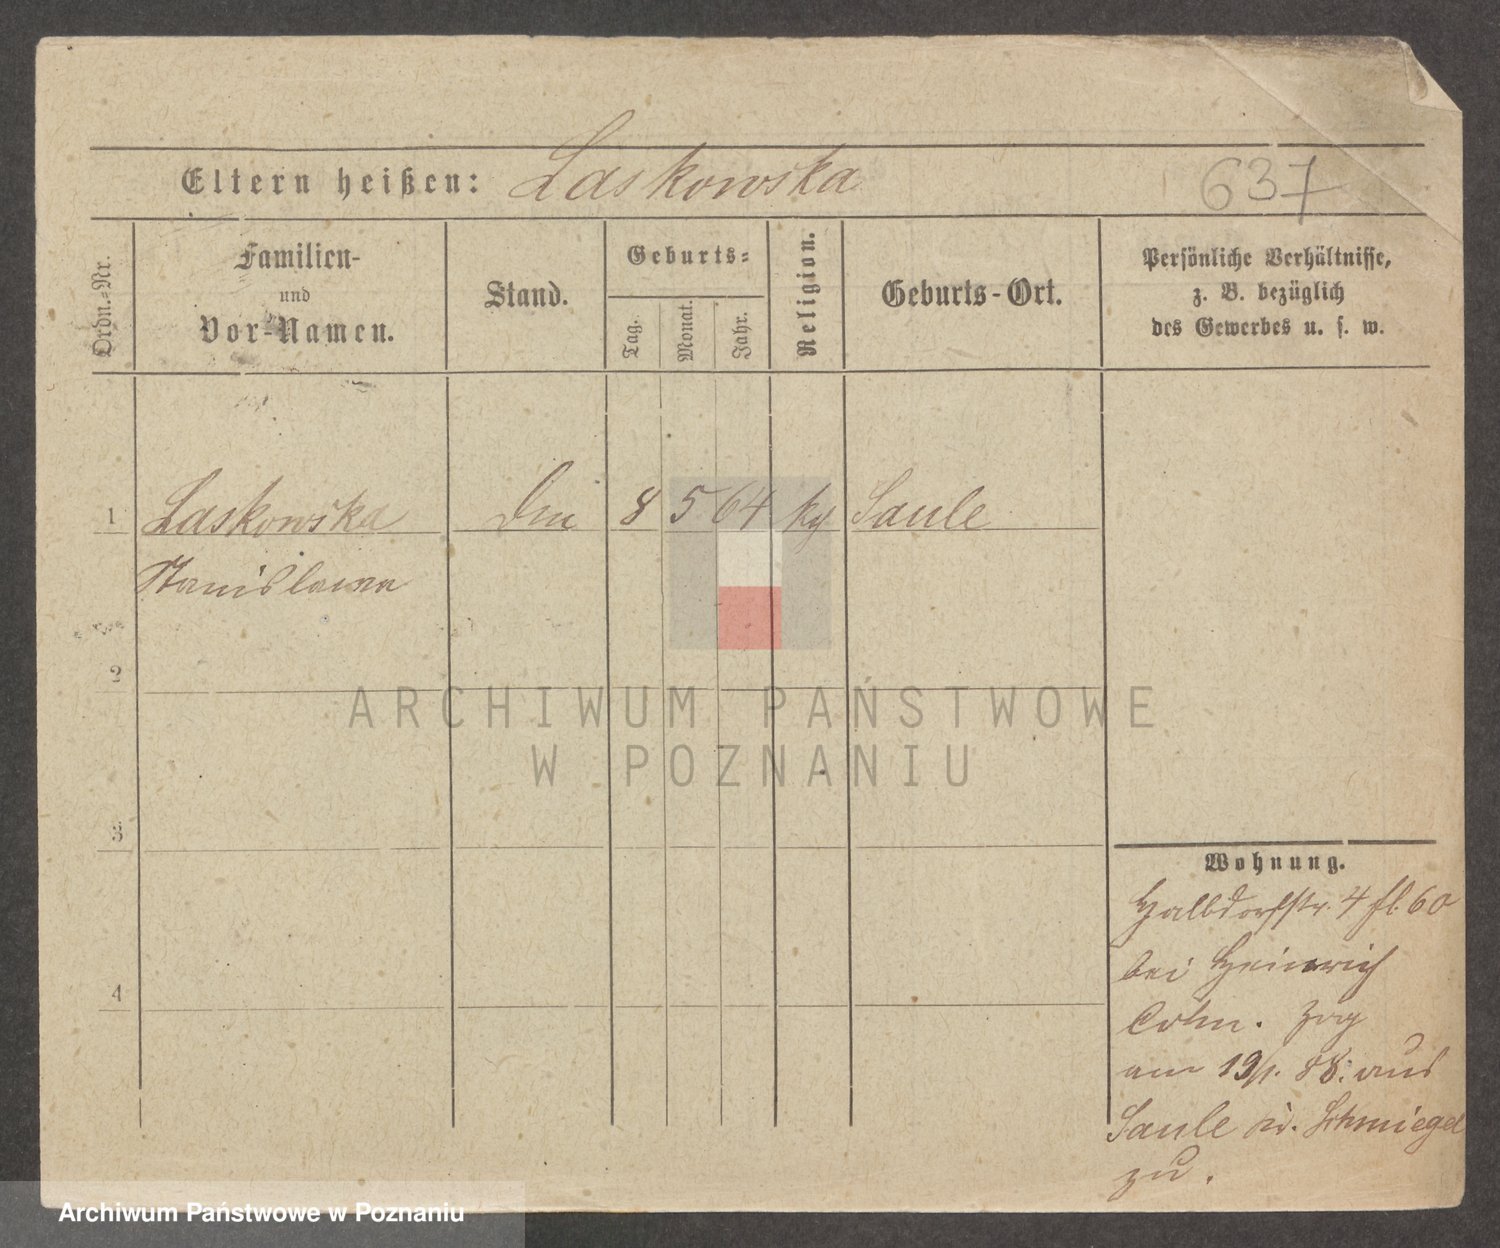 Eltern heißen: Laskowska
637
Ordn.-Nr.
Familien-
und
Vor-Namen.
Stand.
Geburts-
Tag.
Monat.
Jahr.
Religion.
Geburts-Ort.
Persönliche Verhältnisse,
z. B. bezüglich
des Gewerbes u. s. w.
1 Laskowska 8 5 64 Saule
Stanislawa
2
ARCHIWUM PAŃSTWOWE
W POZNANIU
3
4
Wohnung.
Halbdorfstr. 4 fl. 60
bei Heinrich
Cohn. Zog
am 19/1. 88. aus
Saule Schmiegel
zu.
Archiwum Państwowe w Poznaniu